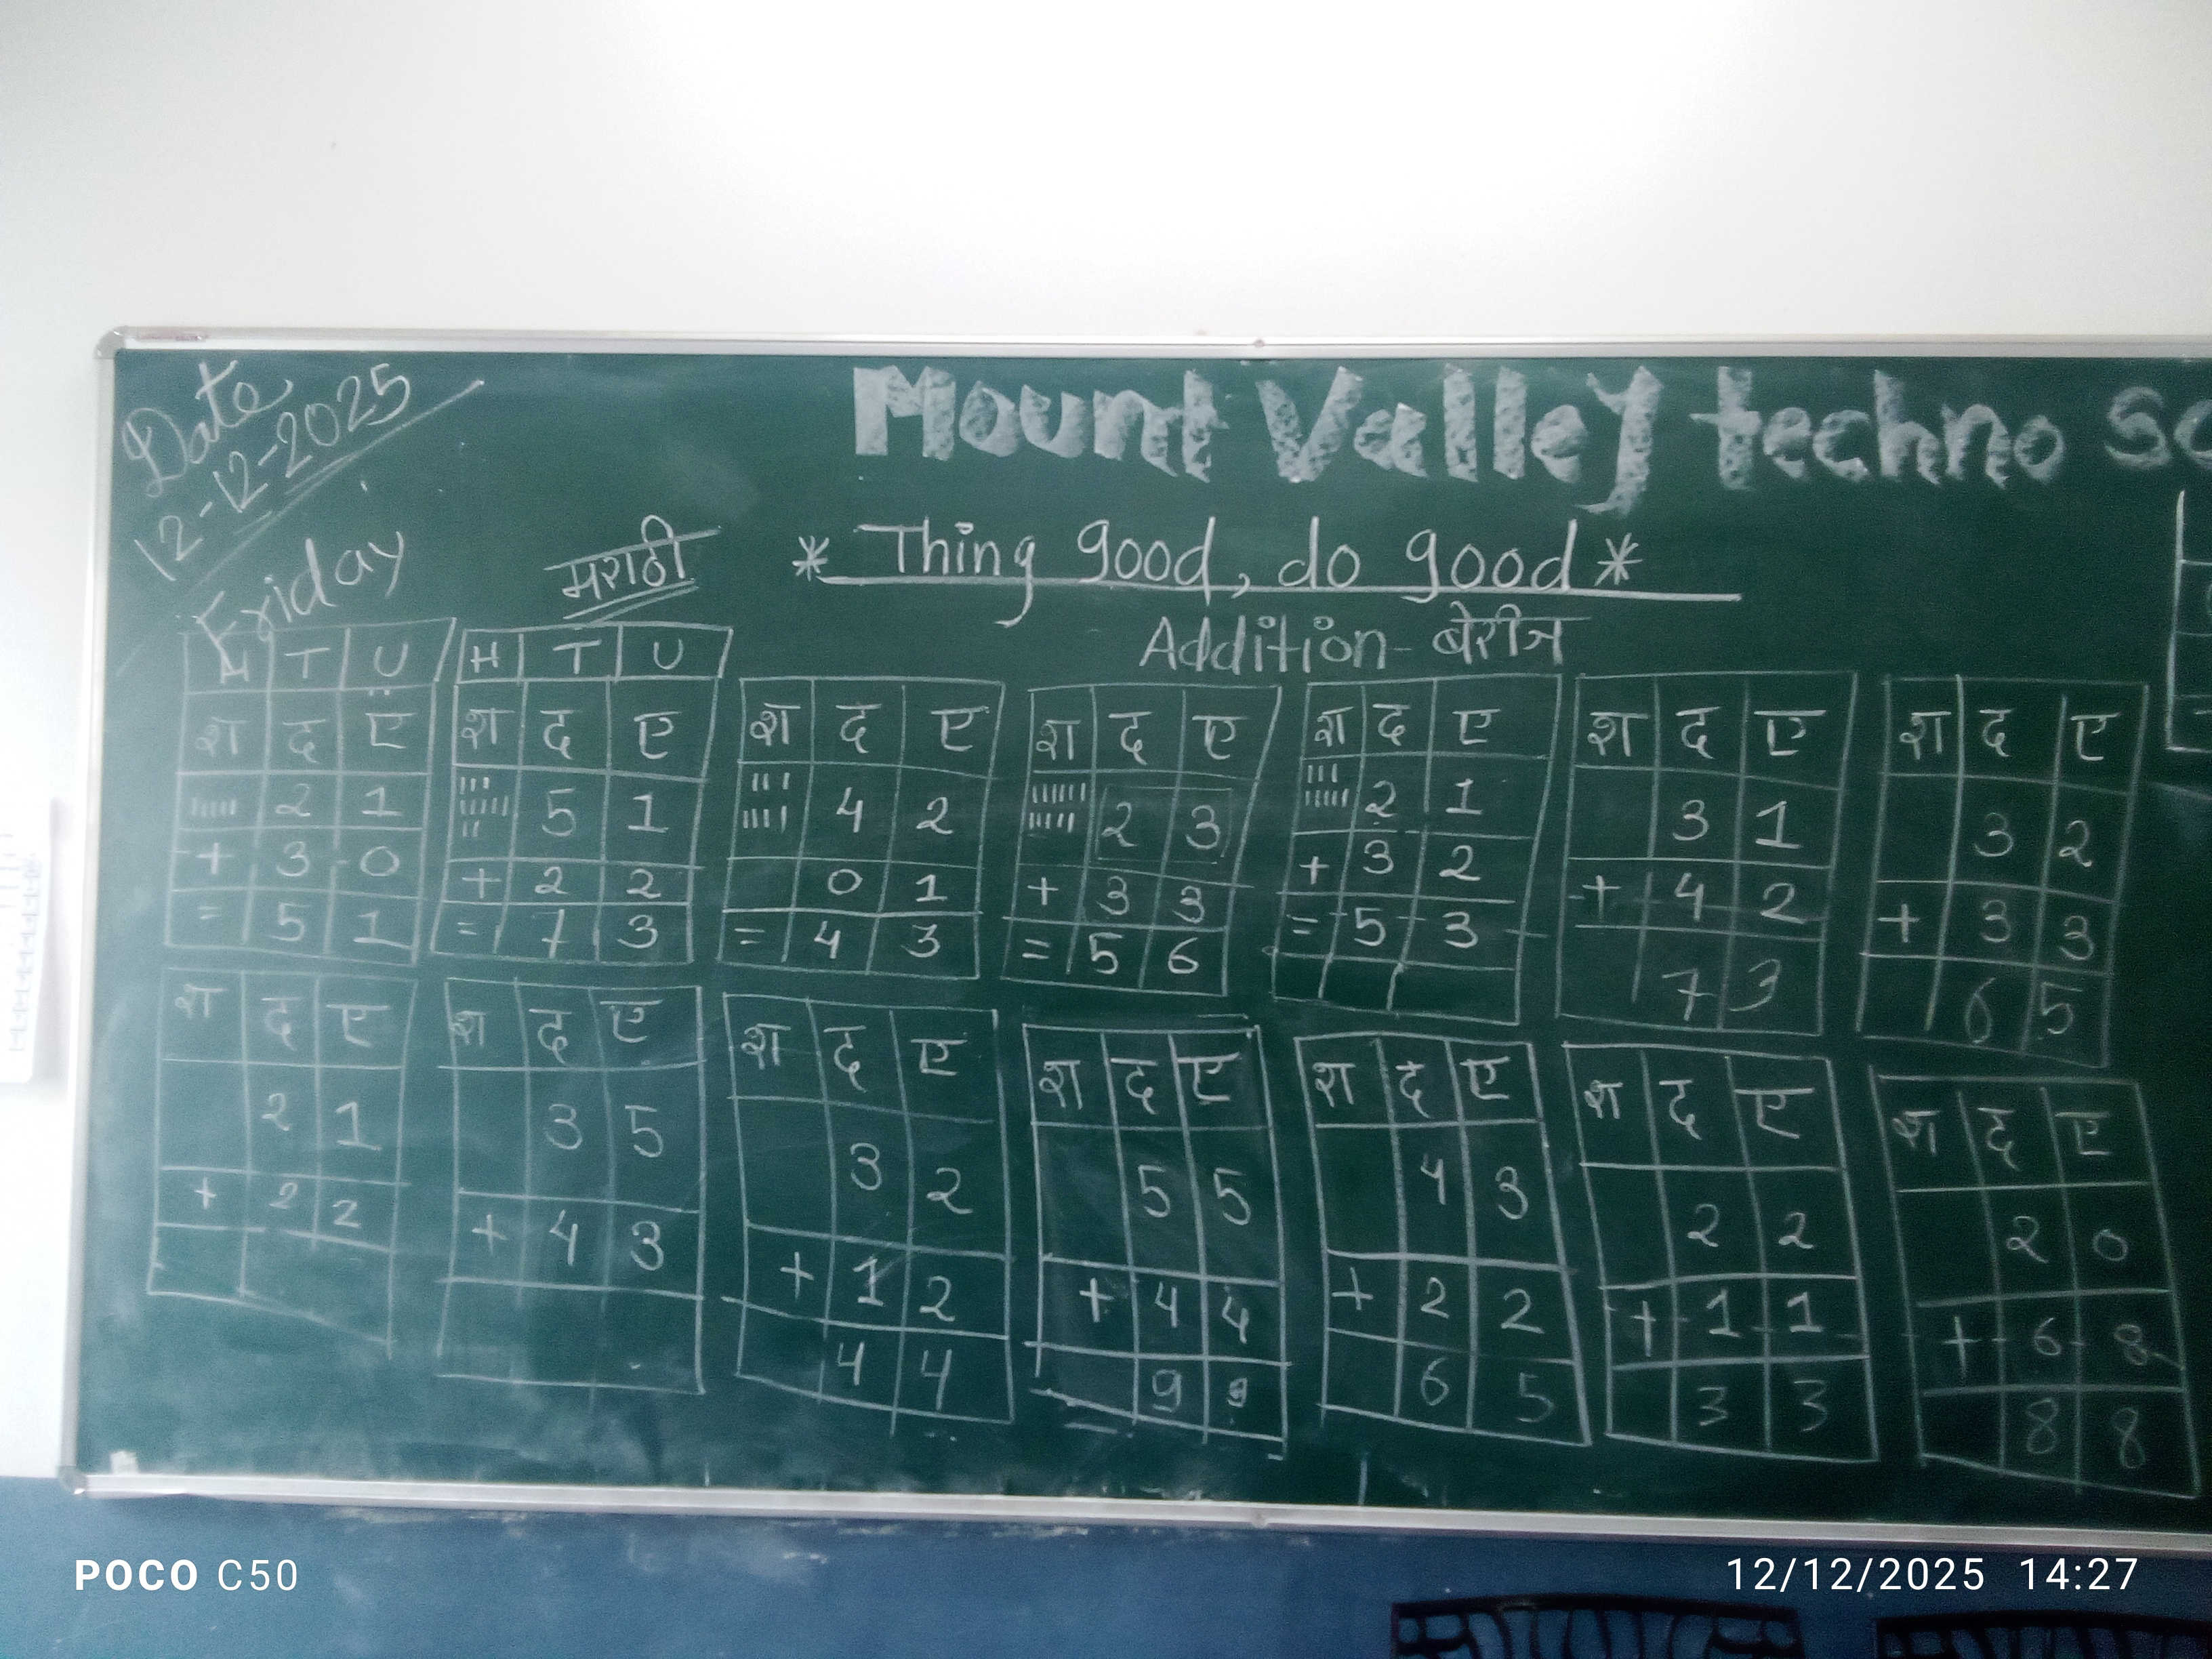 Date
12-12-2025
Friday
Mount Valley techno
मराठी
* Thing good, do good *
Addition - बेरीज
H T U
श द ए
2 1
+ 3 0
= 5 1
H T U
श द ए
5 1
+ 2 2
= 7 3
श द ए
4 2
0 1
= 4 3
श द ए
2 3
+ 3 3
= 5 6
श द ए
2 1
+ 3 2
= 5 3
श द ए
3 1
+ 4 2
7 3
श द ए
3 2
+ 3 3
6 5
श द ए
2 1
+ 2 2
श द ए
3 5
+ 4 3
श द ए
3 2
+ 1 2
4 4
श द ए
5 5
+ 4 4
9 9
श द ए
4 3
+ 2 2
6 5
श द ए
2 2
+ 1 1
3 3
श द ए
2 0
+ 6 8
8 8
POCO C50
12/12/2025 14:27